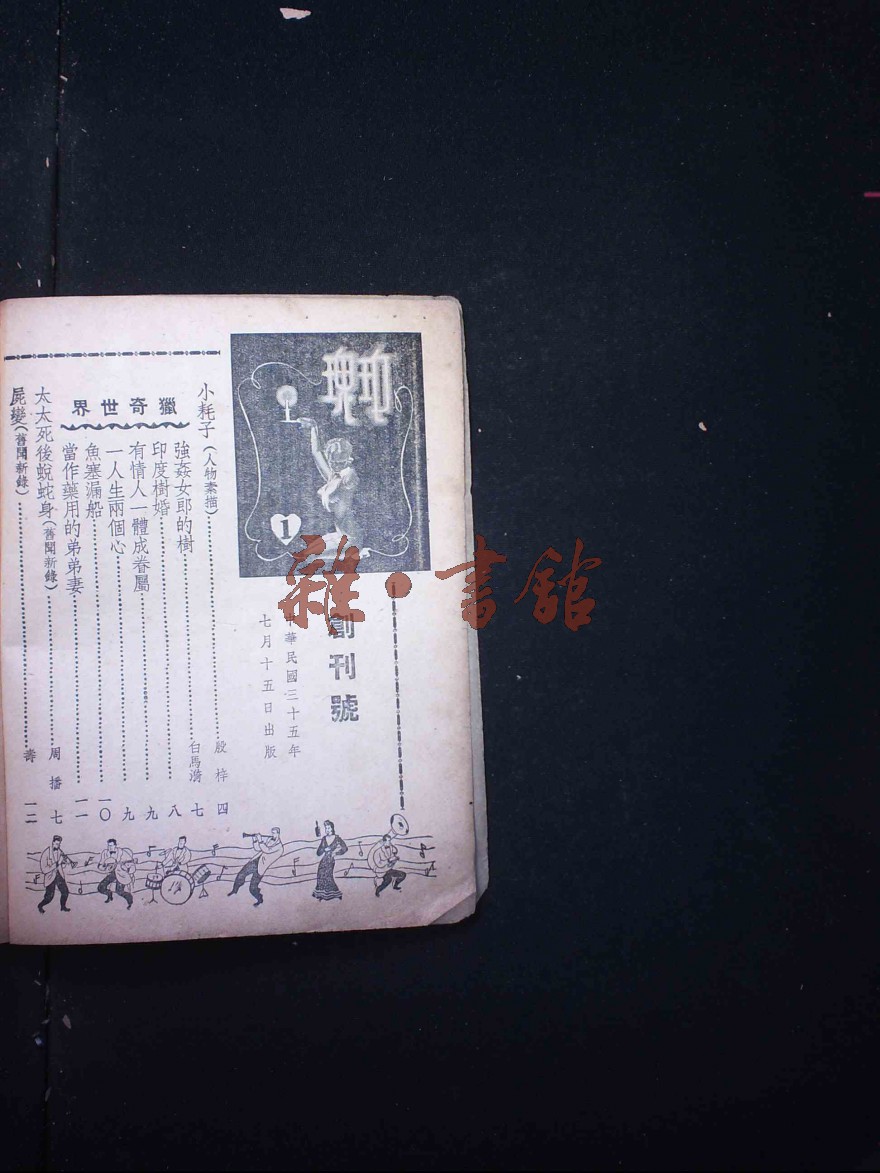 1
創刊號
中華民國三十五年
七月十五日出版
小耗子(人物素描)……殷梓 四
獵奇世界
強姦女郎的樹……白馬漪 七
印度樹婚……八
有情人一體成眷屬……九
一人生兩個心……九
魚塞漏船……一〇
當作藥用的弟弟妻……一一
太太死後蛻蛇身(舊聞新錄)……周播 七
屍變(舊聞新錄)……壽 一二
雜·書館